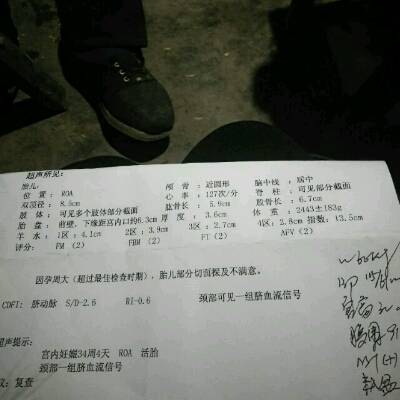 超声所见：
胎儿：
位 置： ROA 颅 骨：近圆形 脑中线：居中
双顶径：8.5cm 心 率：127次/分 脊 柱：可见部分截面
肱骨长：5.9cm 股骨长：6.7cm
肢 体：可见多个肢体部分截面 体 重：2443±183g
胎 盘：前壁，下缘距宫内口约6.3cm 厚度：3.6cm
羊 水：1区：4.1cm 2区：3.9cm 3区：2.7cm 4区：2.8cm 指数：13.5cm
评分： FM (2) FBM (2) FT (2) AFV (2)
因孕周大（超过最佳检查时期），胎儿部分切面探及不满意。
CDFI: 脐动脉 S/D-2.6 RI-0.6 颈部可见一组脐血流信号
超声提示：
宫内妊娠34周4天 ROA 活胎
颈部一组脐血流信号
议：复查